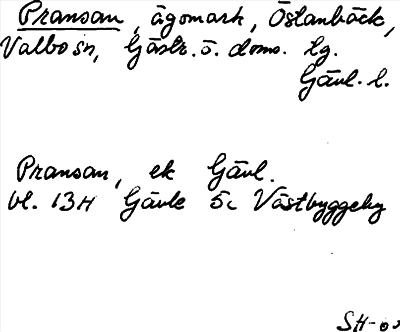 Pransan, ägomark, Östanbäck,
Valbo sn, Gästr. ö. doms. lg.
Gävl. l.
Pransan, ek Gävl.
bl. 13H Gävle 5c Västbyggeby
SH-02